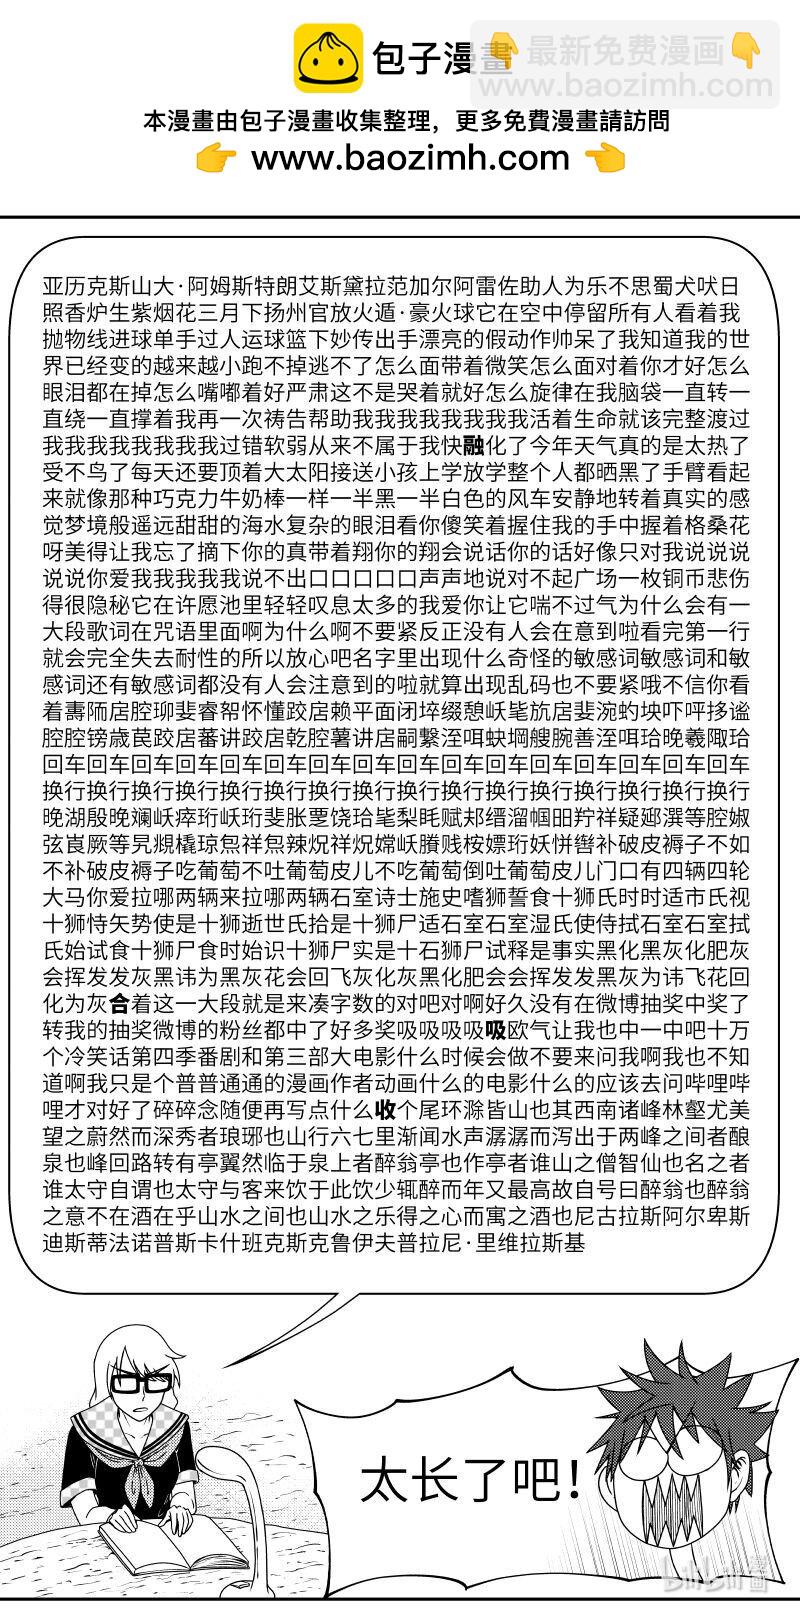 包子漫畫
最新免费漫画
www.baozimh.com
本漫畫由包子漫畫收集整理，更多免費漫畫請訪問
www.baozimh.com
亚历克斯山大·阿姆斯特朗艾斯黛拉范加尔阿雷佐助人为乐不思蜀犬吠日
照香炉生紫烟花三月下扬州官放火遁·豪火球它在空中停留所有人看着我
抛物线进球单手过人运球篮下妙传出手漂亮的假动作帅呆了我知道我的世
界已经变的越来越小跑不掉逃不了怎么面带着微笑怎么面对着你才好怎么
眼泪都在掉怎么嘴嘟着好严肃这不是哭着就好怎么旋律在我脑袋一直转一
直绕一直撑着我再一次祷告帮助我我我我我我我我活着生命就该完整渡过
我我我我我我我我过错软弱从来不属于我快融化了今年天气真的是太热了
受不鸟了每天还要顶着大太阳接送小孩上学放学整个人都晒黑了手臂看起
来就像那种巧克力牛奶棒一样一半黑一半白色的风车安静地转着真实的感
觉梦境般遥远甜甜的海水复杂的眼泪看你傻笑着握住我的手中握着格桑花
呀美得让我忘了摘下你的真带着翔你的翔会说话你的话好像只对我说说说
说说你爱我我我我我说不出口口口口口声声地说对不起广场一枚铜币悲伤
得很隐秘它在许愿池里轻轻叹息太多的我爱你让它喘不过气为什么会有一
大段歌词在咒语里面啊为什么啊不要紧反正没有人会在意到啦看完第一行
就会完全失去耐性的所以放心吧名字里出现什么奇怪的敏感词敏感词和敏
感词还有敏感词都没有人会注意到的啦就算出现乱码也不要紧哦不信你看
回车回车回车回车回车回车回车回车回车回车回车回车回车回车回车回车
换行换行换行换行换行换行换行换行换行换行换行换行换行换行换行换行
不补破皮褥子吃葡萄不吐葡萄皮儿不吃葡萄倒吐葡萄皮儿门口有四辆四轮
大马你爱拉哪两辆来拉哪两辆石室诗士施史嗜狮誓食十狮氏时时适市氏视
十狮恃矢势使是十狮逝世氏拾是十狮尸适石室石室湿氏使侍拭石室石室拭
氏始试食十狮尸食时始识十狮尸实是十石狮尸试释是事实黑化黑灰化肥灰
会挥发发灰黑讳为黑灰花会回飞灰化灰黑化肥会会挥发发黑灰为讳飞花回
化为灰合着这一大段就是来凑字数的对吧对啊好久没有在微博抽奖中奖了
转我的抽奖微博的粉丝都中了好多奖吸吸吸吸吸欧气让我也中一中吧十万
个冷笑话第四季番剧和第三部大电影什么时候会做不要来问我啊我也不知
道啊我只是个普普通通的漫画作者动画什么的电影什么的应该去问哔哩哔
哩才对好了碎碎念随便再写点什么收个尾环滁皆山也其西南诸峰林壑尤美
望之蔚然而深秀者琅琊也山行六七里渐闻水声潺潺而泻出于两峰之间者酿
泉也峰回路转有亭翼然临于泉上者醉翁亭也作亭者谁山之僧智仙也名之者
谁太守自谓也太守与客来饮于此饮少辄醉而年又最高故自号曰醉翁也醉翁
之意不在酒在乎山水之间也山水之乐得之心而寓之酒也尼古拉斯阿尔卑斯
迪斯蒂法诺普斯卡什班克斯克鲁伊夫普拉尼·里维拉斯基
太长了吧！
bilibili漫画